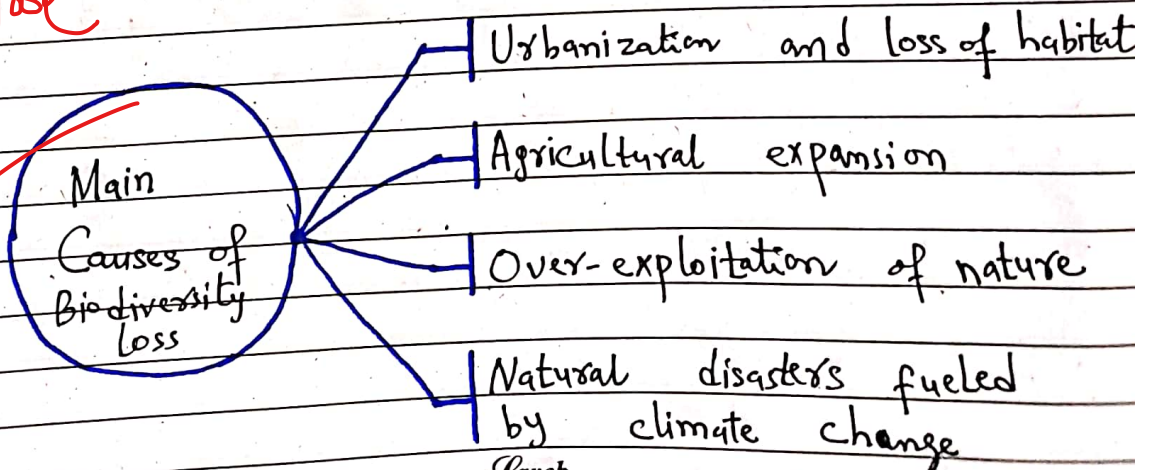 Main
Causes of
Biodiversity
loss
Urbanization and loss of habitat
Agricultural expansion
Over-exploitation of nature
Natural disasters fueled
by climate change